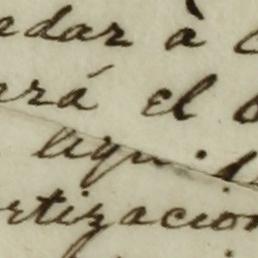 edar à c
ará el
aqui.
rtizacion